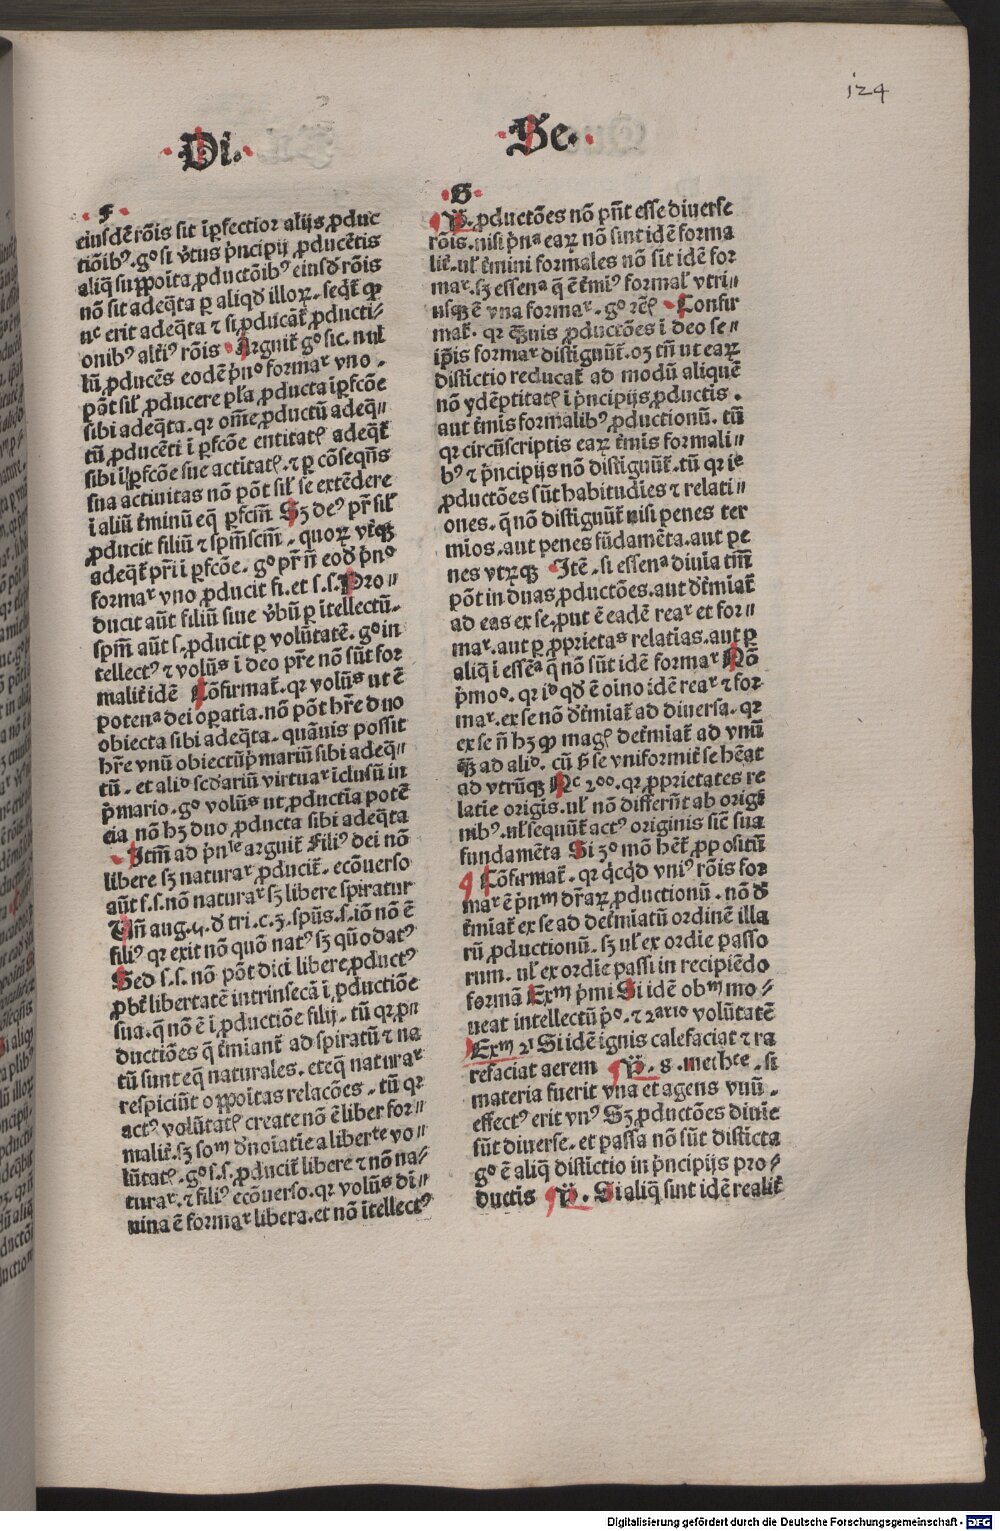 124
Di.
Se.
F
eiusdē rōis sit īꝑfectior alijs ꝓduc
tiōibꝰ. gᵒ si v̄tus p̄ncipij ꝓducētis
aliq̄ suppoīta ꝓductōibꝰ eiusd̄ rōis
nō sit adeq̄ta ꝑ aliqd̄ illoꝝ. seqt̄ ꝙ
nᶜ erit adeq̄ta ⁊ si ꝓducat̄ ꝓducti⸗
onibꝰ altīꝰ rōis Arguit̄ gᵒ sic. nul
lū ꝓducēs eodē p̄nᵒ formaʳ vno.
pōt sil̄ ꝓducere pl̄a ꝓducta īꝑfcōe
sibi adeq̄ta. qꝛ om̄e ꝓductū adeq̄⸗
tū ꝓducēti ī ꝑfcōe entitatꝭ adeqt̄
sibi ī ꝑfcōe sue actitatꝭ. ⁊ ꝑ cōseqn̄s
sua actiuitas nō pōt sil̄ se extēdere
ī aliū t̄minū eq̄ ꝑfcm̄ Sꝫ deꝰ pr̄ sil̄
ꝓducit filiū ⁊ spm̄scm̄. quoꝝ vtqꝫ
adeqt̄ pr̄i ī ꝑfcōe. gᵒ pr̄ n̄ eod̄ p̄nᵒ
formaʳ vno ꝓducit fi. et s.s. Pro⸗
ducit aūt filiū siue v̄bū ꝑ ītellectū.
spm̄ aūt s. ꝓducit ꝑ volūtatē. gᵒ in
tellectꝰ ⁊ volūˢ ī deo pr̄e nō sūt for
malit̄ idē Cōfirmat̄. qꝛ volūˢ ut ē
potenᵃ dei oꝑatia. nō pōt hr̄e duo
obiecta sibi adeq̄ta. quāuis possit
hr̄e vnū obiectū p̄mariū sibi adeq̄⸗
tū. et aliᵒ scdariū virtuaʳ īclusū in
p̄mario. gᵒ volūˢ ut ꝓductīa potē
cia nō hꝫ duo ꝓducta sibi adeq̄ta
Itm̄ ad p̄nˡᵉ arguit̄ Filiꝰ dei nō
libere sꝫ naturaʳ ꝓducit̄. ecōuerso
aūt s.s. nō naturaʳ sꝫ libere spiratur
Vn̄ aug. 4. d̄ tri. c. 3. spūs. s. iō nō ē
filiꝰ qꝛ exit nō quō natꝰ sꝫ qūo datꝰ
Sed s.s. nō pōt dici libere ꝓductꝰ
ꝓbt̄ libertatē intrinsecā ī ꝓductiōe
sua. q̄ nō ē ī ꝓductiōe filij. tū qꝛ ꝓn
ductiōes q̄ t̄miant̄ ad spiratū ⁊ na
tū sunt eq̄ naturales. et eq̄ naturaʳ
respiciūt oppoītas relacōes. tū qꝛ
actꝰ volūtatꝭ create nō ē liber for⸗
malit̄. sꝫ soᵐ d̄noīatie a libertᵉ vo⸗
lūtatꝭ. gᵒ s.s. ꝓducit̄ libere ⁊ nō na⸗
turaʳ. ⁊ filiꝰ ecōuerso. qꝛ volūˢ di⸗
uina ē formaʳ libera. et nō ītellectꝰ
G
ꝓductōes nō pn̄t esse diuerse
rōis. nisi p̄nᵃ eaꝝ nō sint idē forma
lit̄. ul̓ t̄mini formales nō sit idē for
maʳ. sꝫ essenᵃ q̄ ē t̄miꝰ formal̓ vtri⸗
usqꝫ ē vna formaʳ. gᵒ rcꝭ Confir
mat̄. qꝛ quīs ꝓductōes ī deo se⸗
ip̄is formaʳ distiguūt̄. oꝫ tn̄ ut eaꝝ
distictio reducat̄ ad modū aliquē
nō ydēptitatꝭ ī p̄ncipijs ꝓductis.
aut t̄mis formalibꝰ ꝓductionū. tū
qꝛ circūscriptis eaꝝ t̄mis formali⸗
bꝰ ⁊ p̄ncipijs nō distiguūt̄. tū qꝛ iᵉ
ꝓductōes sūt habitudīes ⁊ relati⸗
ones. q̄ nō distiguūt̄ nisi penes ter
mīos. aut penes fūdamēta. aut pe
nes vtꝝqꝫ Itē. si essenᵃ diuīa tm̄
pōt in duas ꝓductōes. aut dt̄miat̄
ad eas ex se. put ē eadē reaʳ et for⸗
maʳ. aut ꝑ ꝓprietaˢ relatias. aut ꝑ
aliq̄ ī essēᵃ q̄ nō sūt idē formaʳ Nō
p̄moᵒ. qꝛ iᵒ qd̄ ē oino idē reaʳ ⁊ for
maʳ. ex se nō dt̄miat̄ ad diuersa. qꝛ
ex se n̄ hꝫ ꝙ magꝭ det̄miat̄ ad vnū
qꝫ ad aliᵒ. cū ꝑ se vniformit̄ se hēat
ad vtrūqꝫ Nᶜ 2ᵒᵒ. qꝛ ꝓprietates re
latie origis. ul̓ nō differūt ab origi
nibꝰ. ul̓ sequūt̄ actꝰ originis siē sua
fundamēta Si 3ᵒ mō hēt̄ ꝓpositū
Cōfirmat̄. qꝛ qc̄qd̄ vniꝰ rōis for
maʳ ē p̄nᵐ dr̄aꝝ ꝓductionū. nō dt̄
t̄miat̄ ex se ad det̄miatū ordinē illa
rū ꝓductionū. sꝫ ul̓ ex ordīe passo
rum. ul̓ ex ordīe passi in recipiēdo
formā Exᵐ p̄mi Si idē obᵐ mo⸗
ueat intellectū p̄ᵒ. ⁊ 2ᵃʳⁱᵒ volūtatē
Exᵐ 2ⁱ Si idē ignis calefaciat ⁊ ra
refaciat aerem P̄. 8. methᶜᵉ. si
materia fuerit vna et agens vnū.
effectꝰ erit vnꝰ Sꝫ ꝓductōes diuīe
sūt diuerse. et passa nō sūt disticta
gᵒ ē aliq̄ distictio in p̄ncipijs pro⸗
ductis P̄. Si aliq̄ sint idē realit̄
Digitalisierung gefördert durch die Deutsche Forschungsgemeinschaft - DFG